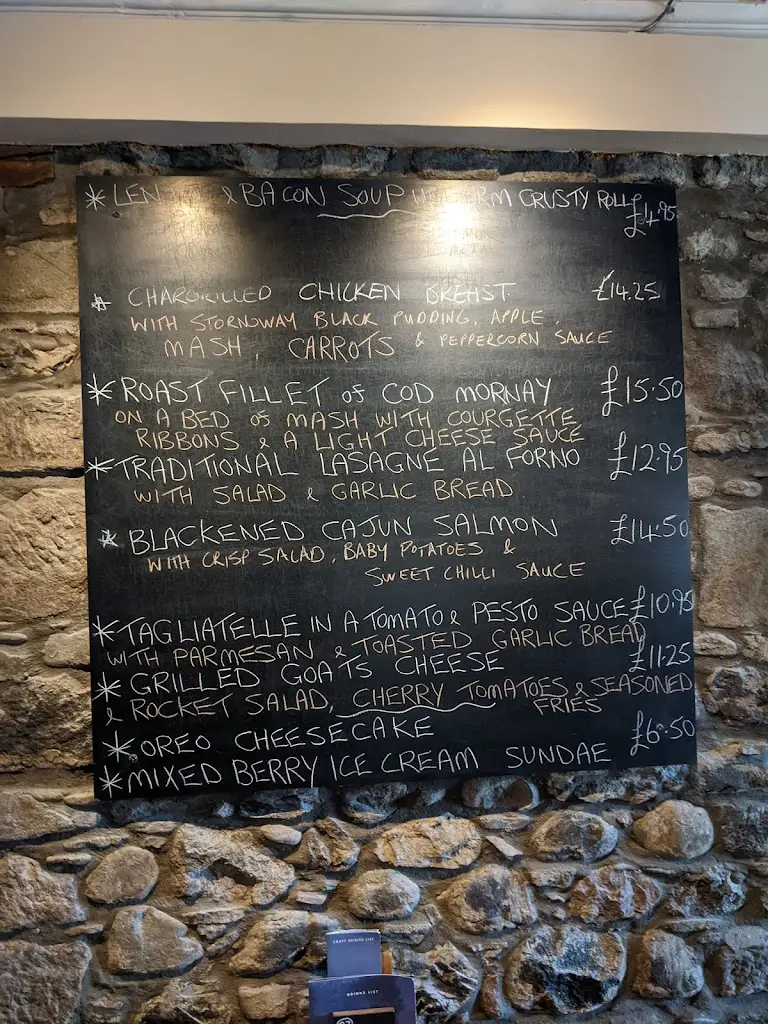 * LEN & BACON SOUP CRUSTY ROLL £4.95
* CHARGRILLED CHICKEN BREAST £14.25
WITH STORNOWAY BLACK PUDDING, APPLE,
MASH, CARROTS & PEPPERCORN SAUCE
* ROAST FILLET of COD MORNAY £15.50
ON A BED of MASH WITH COURGETTE
RIBBONS & A LIGHT CHEESE SAUCE
* TRADITIONAL LASAGNE AL FORNO £12.95
WITH SALAD & GARLIC BREAD
* BLACKENED CAJUN SALMON £14.50
WITH CRISP SALAD, BABY POTATOES &
SWEET CHILLI SAUCE
* TAGLIATELLE IN A TOMATO & PESTO SAUCE £10.95
WITH PARMESAN & TOASTED GARLIC BREAD
* GRILLED GOATS CHEESE £11.25
& ROCKET SALAD, CHERRY TOMATOES & SEASONED
FRIES
* OREO CHEESECAKE £6.50
* MIXED BERRY ICE CREAM SUNDAE
CRAFT SPIRITS LIST
DRINKS LIST